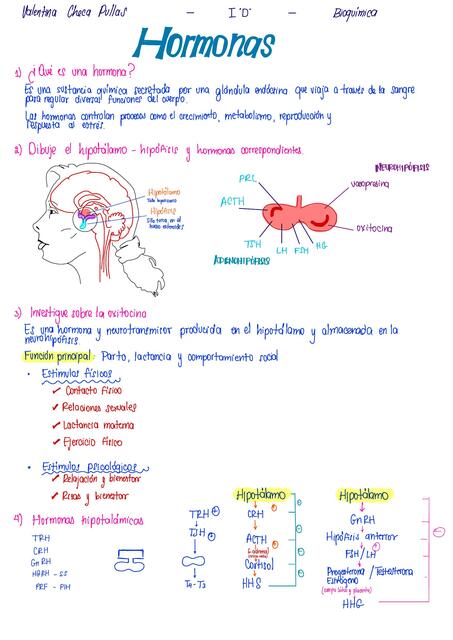 Valentina Checa Pullas - I"D" - Bioquímica
Hormonas
1) ¿Qué es una hormona?
Es una sustancia química secretada por una glándula endócrina que viaja a través de la sangre
para regular diversas funciones del cuerpo.
Las hormonas controlan procesos como el crecimiento, metabolismo, reproducción y
respuesta al estrés.
2) Dibuje el hipotálamo - hipófisis y hormonas correspondientes.
Hipotálamo
Hipófisis
Silla turca, en el
hueso esfenoides
NEUROHIPÓFISIS
PRL
vasopresina
ACTH
oxitocina
TSH
LH
FSH
HG
ADENOHIPÓFISIS
3) Investigue sobre la oxitocina
Es una hormona y neurotransmisor producida en el hipotálamo y almacenada en la
neurohipófisis.
Función principal: Parto, lactancia y comportamiento social
• Estímulos físicos
✓ Contacto físico
✓ Relaciones sexuales
✓ Lactancia materna
✓ Ejercicio físico
• Estímulos psicológicos
✓ Relajación y bienestar
✓ Risas y bienestar
4) Hormonas hipotalámicas
TRH
CRH
GnRH
HGRH - SS
PRF - PIH
TRH +
TSH +
T4 - T3
Hipotálamo
CRH
ACTH
Cortisol
HHS
Hipotálamo
GnRH
Hipófisis anterior
FSH/LH
Progesterona / Testosterona
Estrógeno
HHG